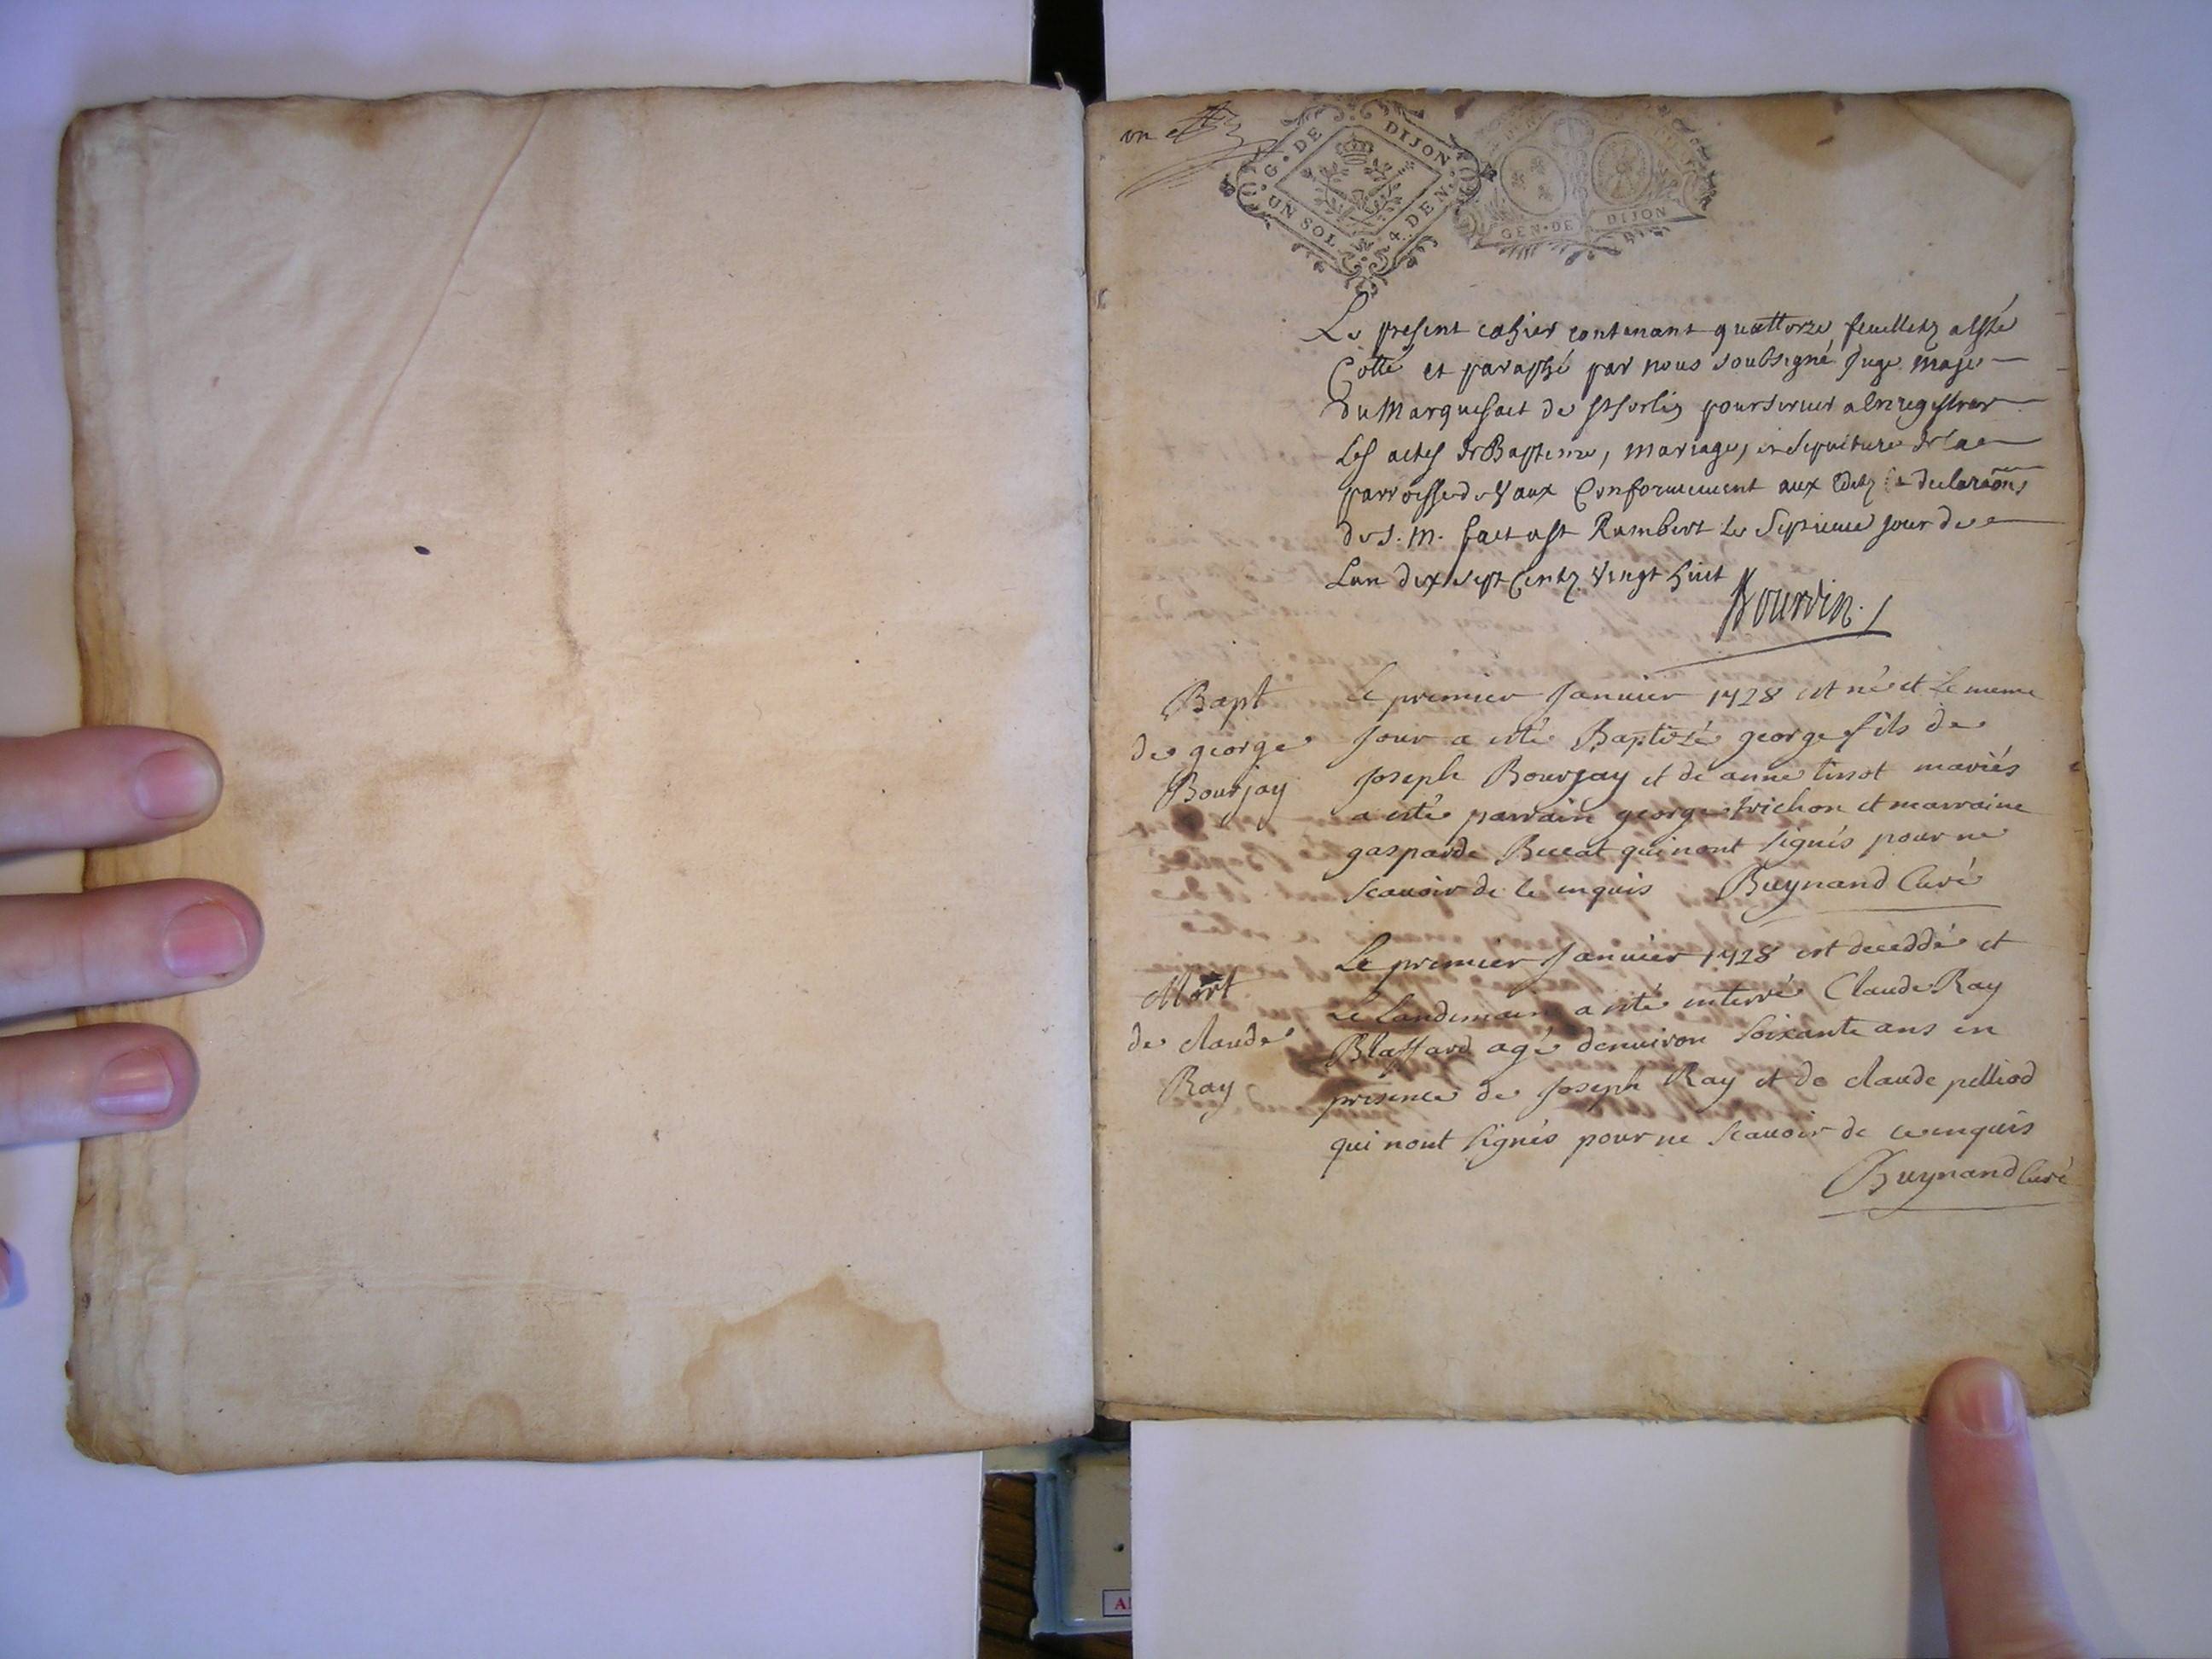 un
G. DE DIJON
UN SOL 4. DEN.
GEN. DE DIJON
Le present cahier contenant quattorze feuilletz a esté
Cotté et paraphé par nous soubsigné Juge maje
du Marquisact de St Sorlin pour servier a Enregistrer
Les actes de Baptesme, mariage, et Sepulture de la
parroisse de Vaux Conformement aux Editz et declaraons
de S. M. fait a St Rambert le Septieme jour de
Lan dix sept Centz Vingt huit
Bapt
de george
Bourjay
le premier Januier 1728 est né et le meme
Jour a esté Baptizé george fils de
Joseph Bourjay et de anne tissot mariés
a esté parrain george trichon et marraine
gasparde Buccat qui nont signés pour ne
scauoir de ce enquis Buynand Curé
Mort
de claude
Ray
Le premier Januier 1728 est deceddé et
Le Landemain a esté enterré Claude Ray
Blaffard agé denuiron soixante ans en
presence de Joseph Ray et de claude pelliod
qui nont signés pour ne scauoir de ce enquis
Buynand Curé